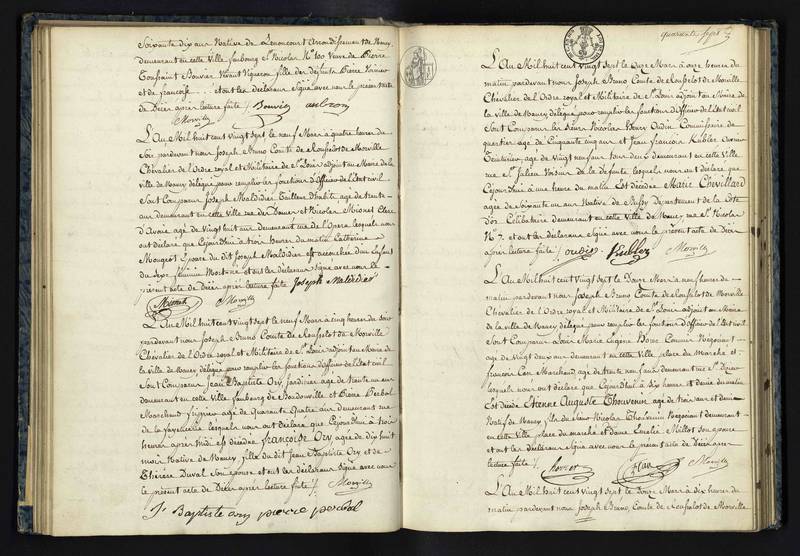 Soixante dix ans Native de Lenoncourt Arrondissement de Nancy,
demeurant en cette Ville faubourg St Nicolas No 100 Veuve de Pierre
Toussaint Bouvier Vivant Vigneron fille des défunts Pierre
et de françoise .... et ont les déclarans Signé avec nous le présent acte
de Décès après lecture faite /. Bouvier aubron
Morville
L'An Mil huit cent vingt sept le neuf Mars à quatre heures du
Soir pardevant nous Joseph Bruno Comte de Rousselot de Morville
Chevalier de l'Ordre royal et Militaire de St Louis adjoint au Maire de la
Ville de Nancy délégué pour remplir les fonctions d'officier de l'Etat civil
Sont Comparus Joseph Maldidier Tailleur d'habits agé de trente
ans demeurant en cette Ville rue et Nicolas Mionet Clerc
d'Avoué agé de vingt huit ans demeurant rue de l'Opera lesquels nous
ont déclaré que Cejourd'hui à trois heures du matin Catherine
Mougeot Epouse du dit Joseph Maldidier est accouchée d'un Enfant
du Sexe féminin Mort né et ont les déclarans Signé avec nous le
présent acte de Décès après lecture faite /. Joseph Maldidier
Mionet Morville
L'An Mil huit cent vingt sept le neuf Mars à cinq heures du Soir
pardevant nous Joseph Bruno Comte de Rousselot de Morville
Chevalier de l'Ordre royal et Militaire de St Louis adjoint au Maire de
la Ville de Nancy, délégué pour remplir les fonctions d'officier de l'Etat civil
Sont Comparus Jean Baptiste Ory, Jardinier agé de trente un ans
demeurant en cette Ville faubourg de Boudonville et Pierre
Marchand frippier agé de Quarante Quatre ans demeurant rue
de la fayellerie lesquels nous ont déclaré que Cejourd'hui à trois
heures après midi est décédée françoise Ory agée de dix huit
mois Native de Nancy, fille du dit Jean Baptiste Ory et de
Thérèse Duval Son Epouse et ont les déclarans Signé avec nous
le présent acte de Décès après lecture faite /. Morville
J Baptiste orry pierre
quarante sept
L'An Mil huit cent Vingt sept le Onze Mars à onze heures du
matin pardevant nous Joseph Bruno Comte de Rousselot de Morville
Chevalier de l'Ordre royal et Militaire de St Louis adjoint au Maire de
la Ville de Nancy délégué pour remplir les fonctions d'officier de l'Etat civil
Sont Comparus les Sieurs Nicolas Henry Oudin Commissaire de
quartier agé de Cinquante cinq ans et Jean françois Kubler Ouvrier
Teinturier, agé de Vingt neuf ans tous deux demeurant en cette Ville
rue St Julien Voisins de la défunte lesquels nous ont déclaré que
Cejourd'hui à une heure du matin Est décédée Marie Chevillard
agée de Soixante un ans Native de Département de la Côte
d'Or Célibataire demeurant en cette Ville de Nancy, rue St Nicolas
No 7. et ont les déclarans Signé avec nous le présent acte de Décès
après lecture faite /. oudin Kubler Morville
L'An Mil huit cent vingt sept le Douze Mars à neuf heures du
matin pardevant nous Joseph Bruno Comte de Rousselot de Morville
Chevalier de l'Ordre royal et Militaire de St Louis adjoint au Maire
de la ville de Nancy délégué pour remplir les fonctions d'officier de l'Etat civil
Sont Comparus Marie Eugène Commis Négociant
agé de Vingt deux ans demeurant en cette Ville, place du Marché et
françois Marchand, agé de trente neuf ans demeurant rue St
lesquels nous ont déclaré que Cejourd'hui à dix heures et demie du matin
Est décédé Etienne Auguste Thouvenin, agé de trois ans et demi
Natif de Nancy fils du Sieur Nicolas Thouvenin Négociant demeurant
en cette Ville place du marché et Dame Amélie Millot Son épouse
et ont les déclarans Signé avec nous le présent acte de Décès après
lecture faite /. Morville
L'An Mil huit cent Vingt sept le Douze Mars à dix heures du
matin pardevant nous Joseph Bruno, Comte de Rousselot de Morville